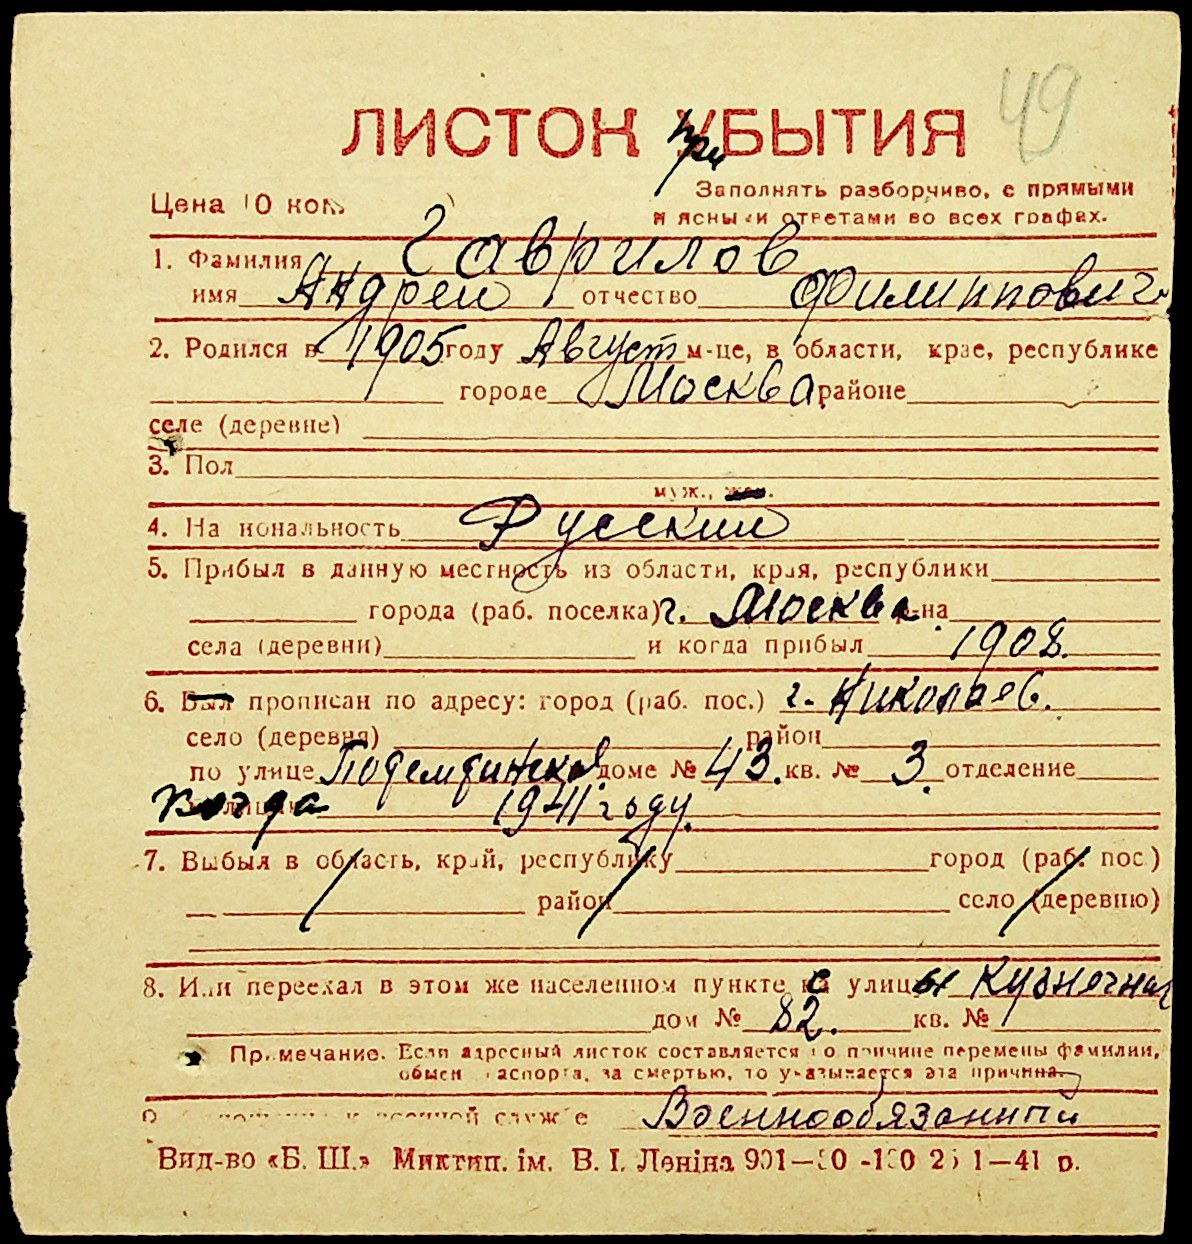 49
ЛИСТОК УБЫТИЯ
при
Цена 10 коп.
Заполнять разборчиво, с прямыми
и ясными ответами во всех графах.
1. Фамилия Гаврилов
имя Андрей отчество Филиппович
2. Родился в 1905 году Август м-це, в области, крае, республике
городе Москва районе
селе (деревне)
3. Пол
муж., жен.
4. Национальность Русский
5. Прибыл в данную местность из области, края, республики
города (раб. поселка) г. Москва р-на
села (деревни) и когда прибыл 1908.
6. Был прописан по адресу: город (раб. пос.) г. Николаев.
село (деревня) район
по улице доме № 43. кв. № 3. отделение
милиции когда 1941 году.
7. Выбыл в область, край, республику город (раб. пос.)
район село (деревню)
8. Или переехал в этом же населенном пункте с улицы Кузнечная
дом № 82. кв. №
Примечание. Если адресный листок составляется по причине перемены фамилии,
обмен паспорта, за смертью, то указывается эта причина.
военной службе Военнообязанный
Вид-во «Б. Ш.» Миктип. ім. В. І. Леніна 1—41 р.